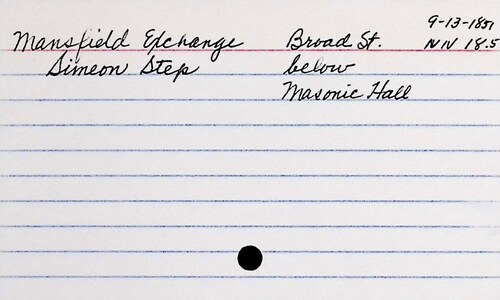 9-13-1851
Mansfield Exchange Broad St. NN 18.5
Simeon Step below
Masonic Hall